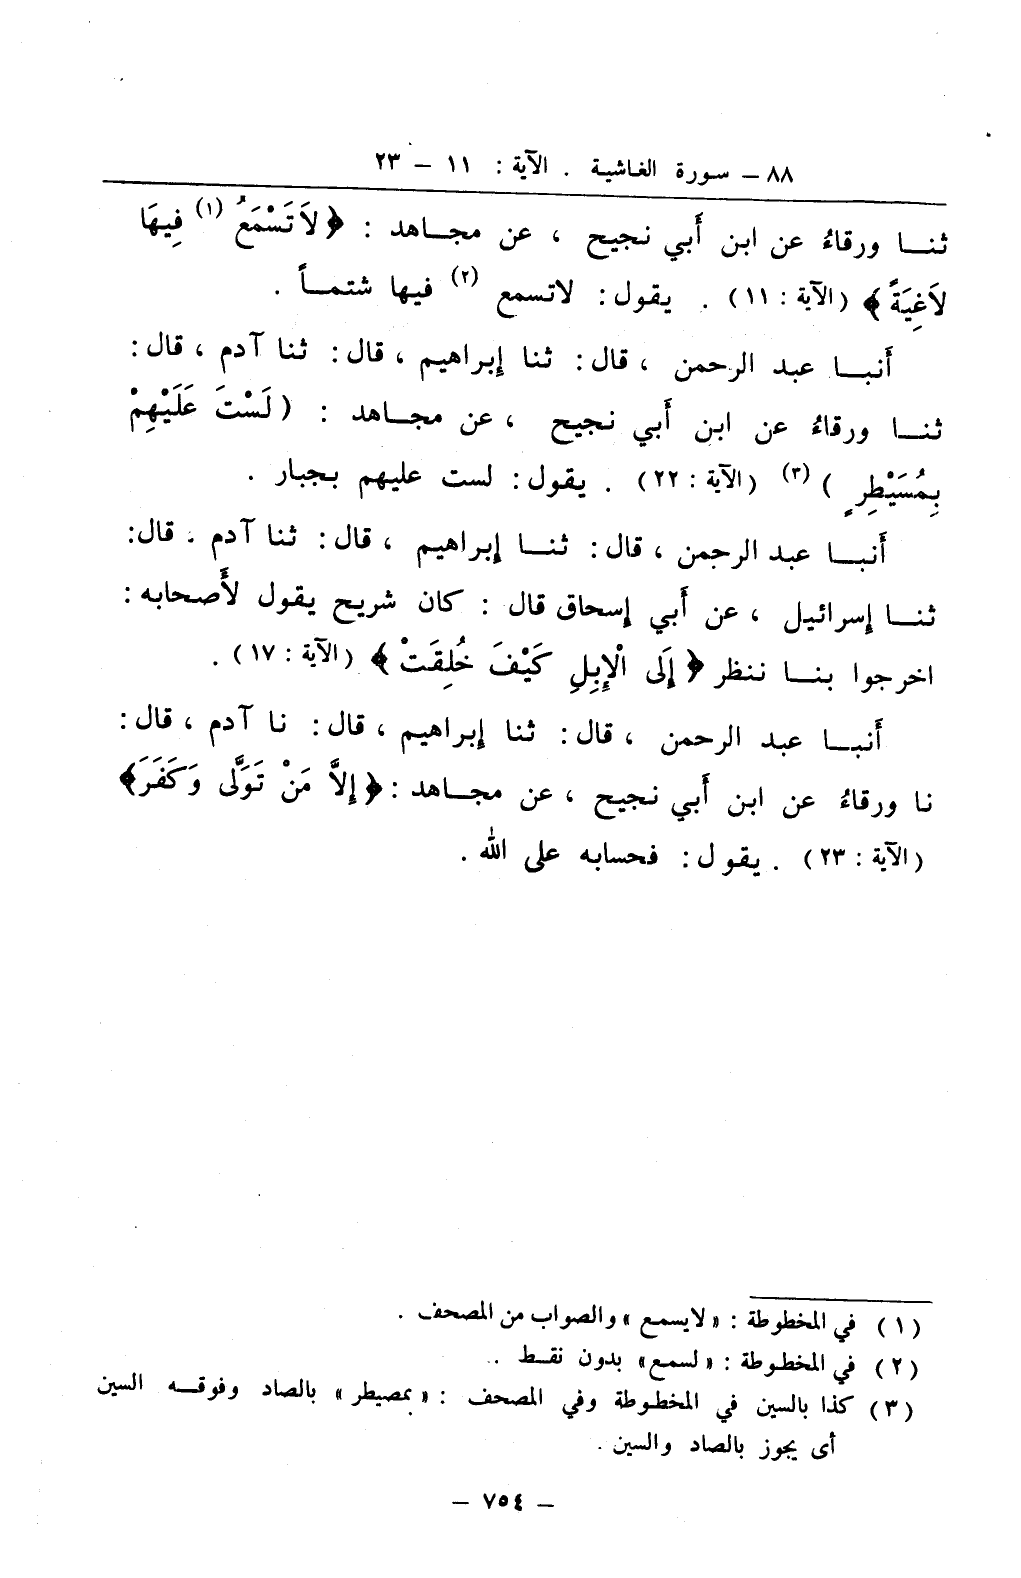 ٨٨ – سورة الغاشية . الآية : ١١ – ٢٣
ثنا ورقاءُ عن ابن أَبي نجيح ، عن مجاهد : ﴿ لاَ تَسْمَعُ (١) فِيهَا
لاَغِيَةً ﴾ (الآية : ١١) . يقول : لاتسمع (٢) فيها شتماً .
أَنبا عبد الرحمن ، قال : ثنا إِبراهيم ، قال : ثنا آدم ، قال :
ثنا ورقاءُ عن ابن أَبي نجيح ، عن مجاهد : ( لَسْتَ عَلَيْهِمْ
بِمُسَيْطِرٍ ) (٣) (الآية : ٢٢) . يقول : لست عليهم بجبار .
أَنبا عبد الرحمن ، قال : ثنا إِبراهيم ، قال : ثنا آدم ، قال :
ثنا إِسرائيل ، عن أَبي إِسحاق قال : كان شريح يقول لأَصحابه :
اخرجوا بنا ننظر ﴿ إِلَى الْإِبِلِ كَيْفَ خُلِقَتْ ﴾ (الآية : ١٧) .
أَنبا عبد الرحمن ، قال : ثنا إِبراهيم ، قال : نا آدم ، قال :
نا ورقاءُ عن ابن أَبي نجيح ، عن مجاهد : ﴿ إِلاَّ مَنْ تَوَلَّى وَكَفَرَ ﴾
(الآية : ٢٣) . يقول : فحسابه على الله .
(١) في المخطوطة : «لايسمع» والصواب من المصحف .
(٢) في المخطوطة : «لسمع» بدون نقط .
(٣) كذا بالسين في المخطوطة وفي المصحف : «بمصيطر» بالصاد وفوقه السين
أى يجوز بالصاد والسين .
– ٧٥٤ –